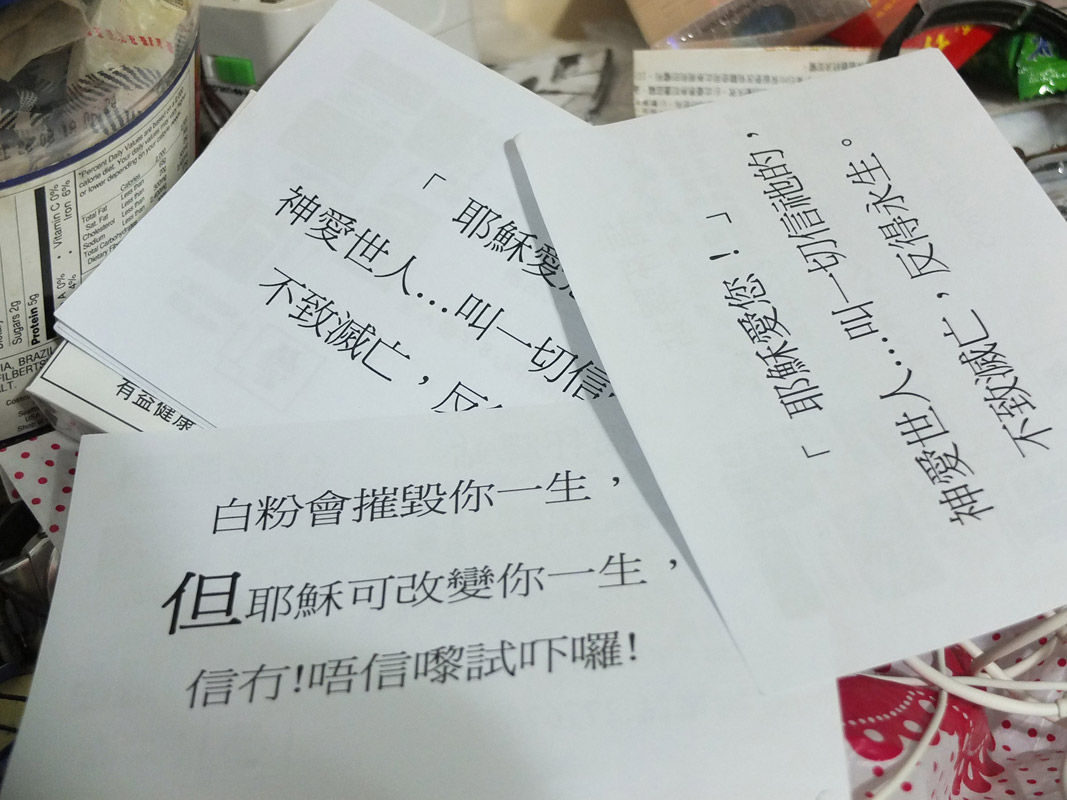 「 耶穌愛
神愛世人…叫一切信
不致滅亡，反
「 耶穌愛您！」
神愛世人…叫一切信祂的，
不致滅亡，反得永生。
白粉會摧毀你一生，
但耶穌可改變你一生，
信冇!唔信嚟試吓囉!
有益健康
*Percent Daily Values are based on a
calorie diet. Your daily values may
or lower depending on your calorie
Calories
Total Fat Less than
Sat. Fat Less than
Cholesterol Less than
Sodium Less than
Total Carbohydra
Dietary Fib
Vitamin C 0%
Iron 6%
Sugars 2g
Protein 5g